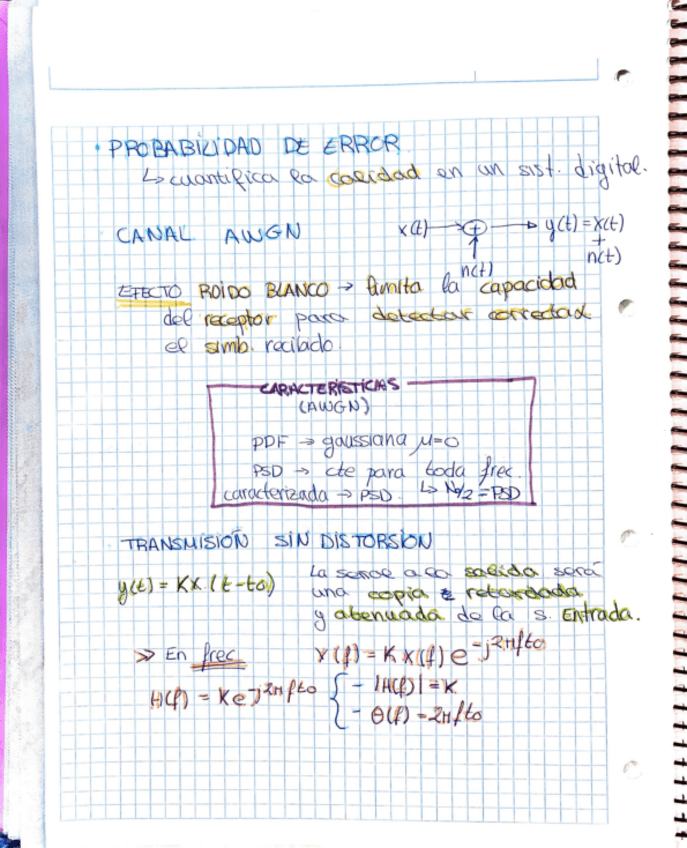 · PROBABILIDAD DE ERROR
↳ cuantifica la calidad en un sist. digital.
CANAL AWGN
x(t) → ⊕ → y(t) = x(t) + n(t)
n(t)
EFECTO RUIDO BLANCO → limita la capacidad
del receptor para detectar
el simb.
CARACTERÍSTICAS
(AWGN)
PDF → gaussiana μ=0
PSD → cte para toda frec.
caracterizada → PSD. ↳ N₀/2 = PSD
TRANSMISIÓN SIN DISTORSIÓN
y(t) = Kx (t-to)
La a la salida será
una copia retardada
y atenuada de la s. Entrada.
>> En frec
Y(f) = K X(f) e^-j2πfto
H(f) = K e^-j2πfto
- |H(f)| = K
- θ(f) = 2πfto